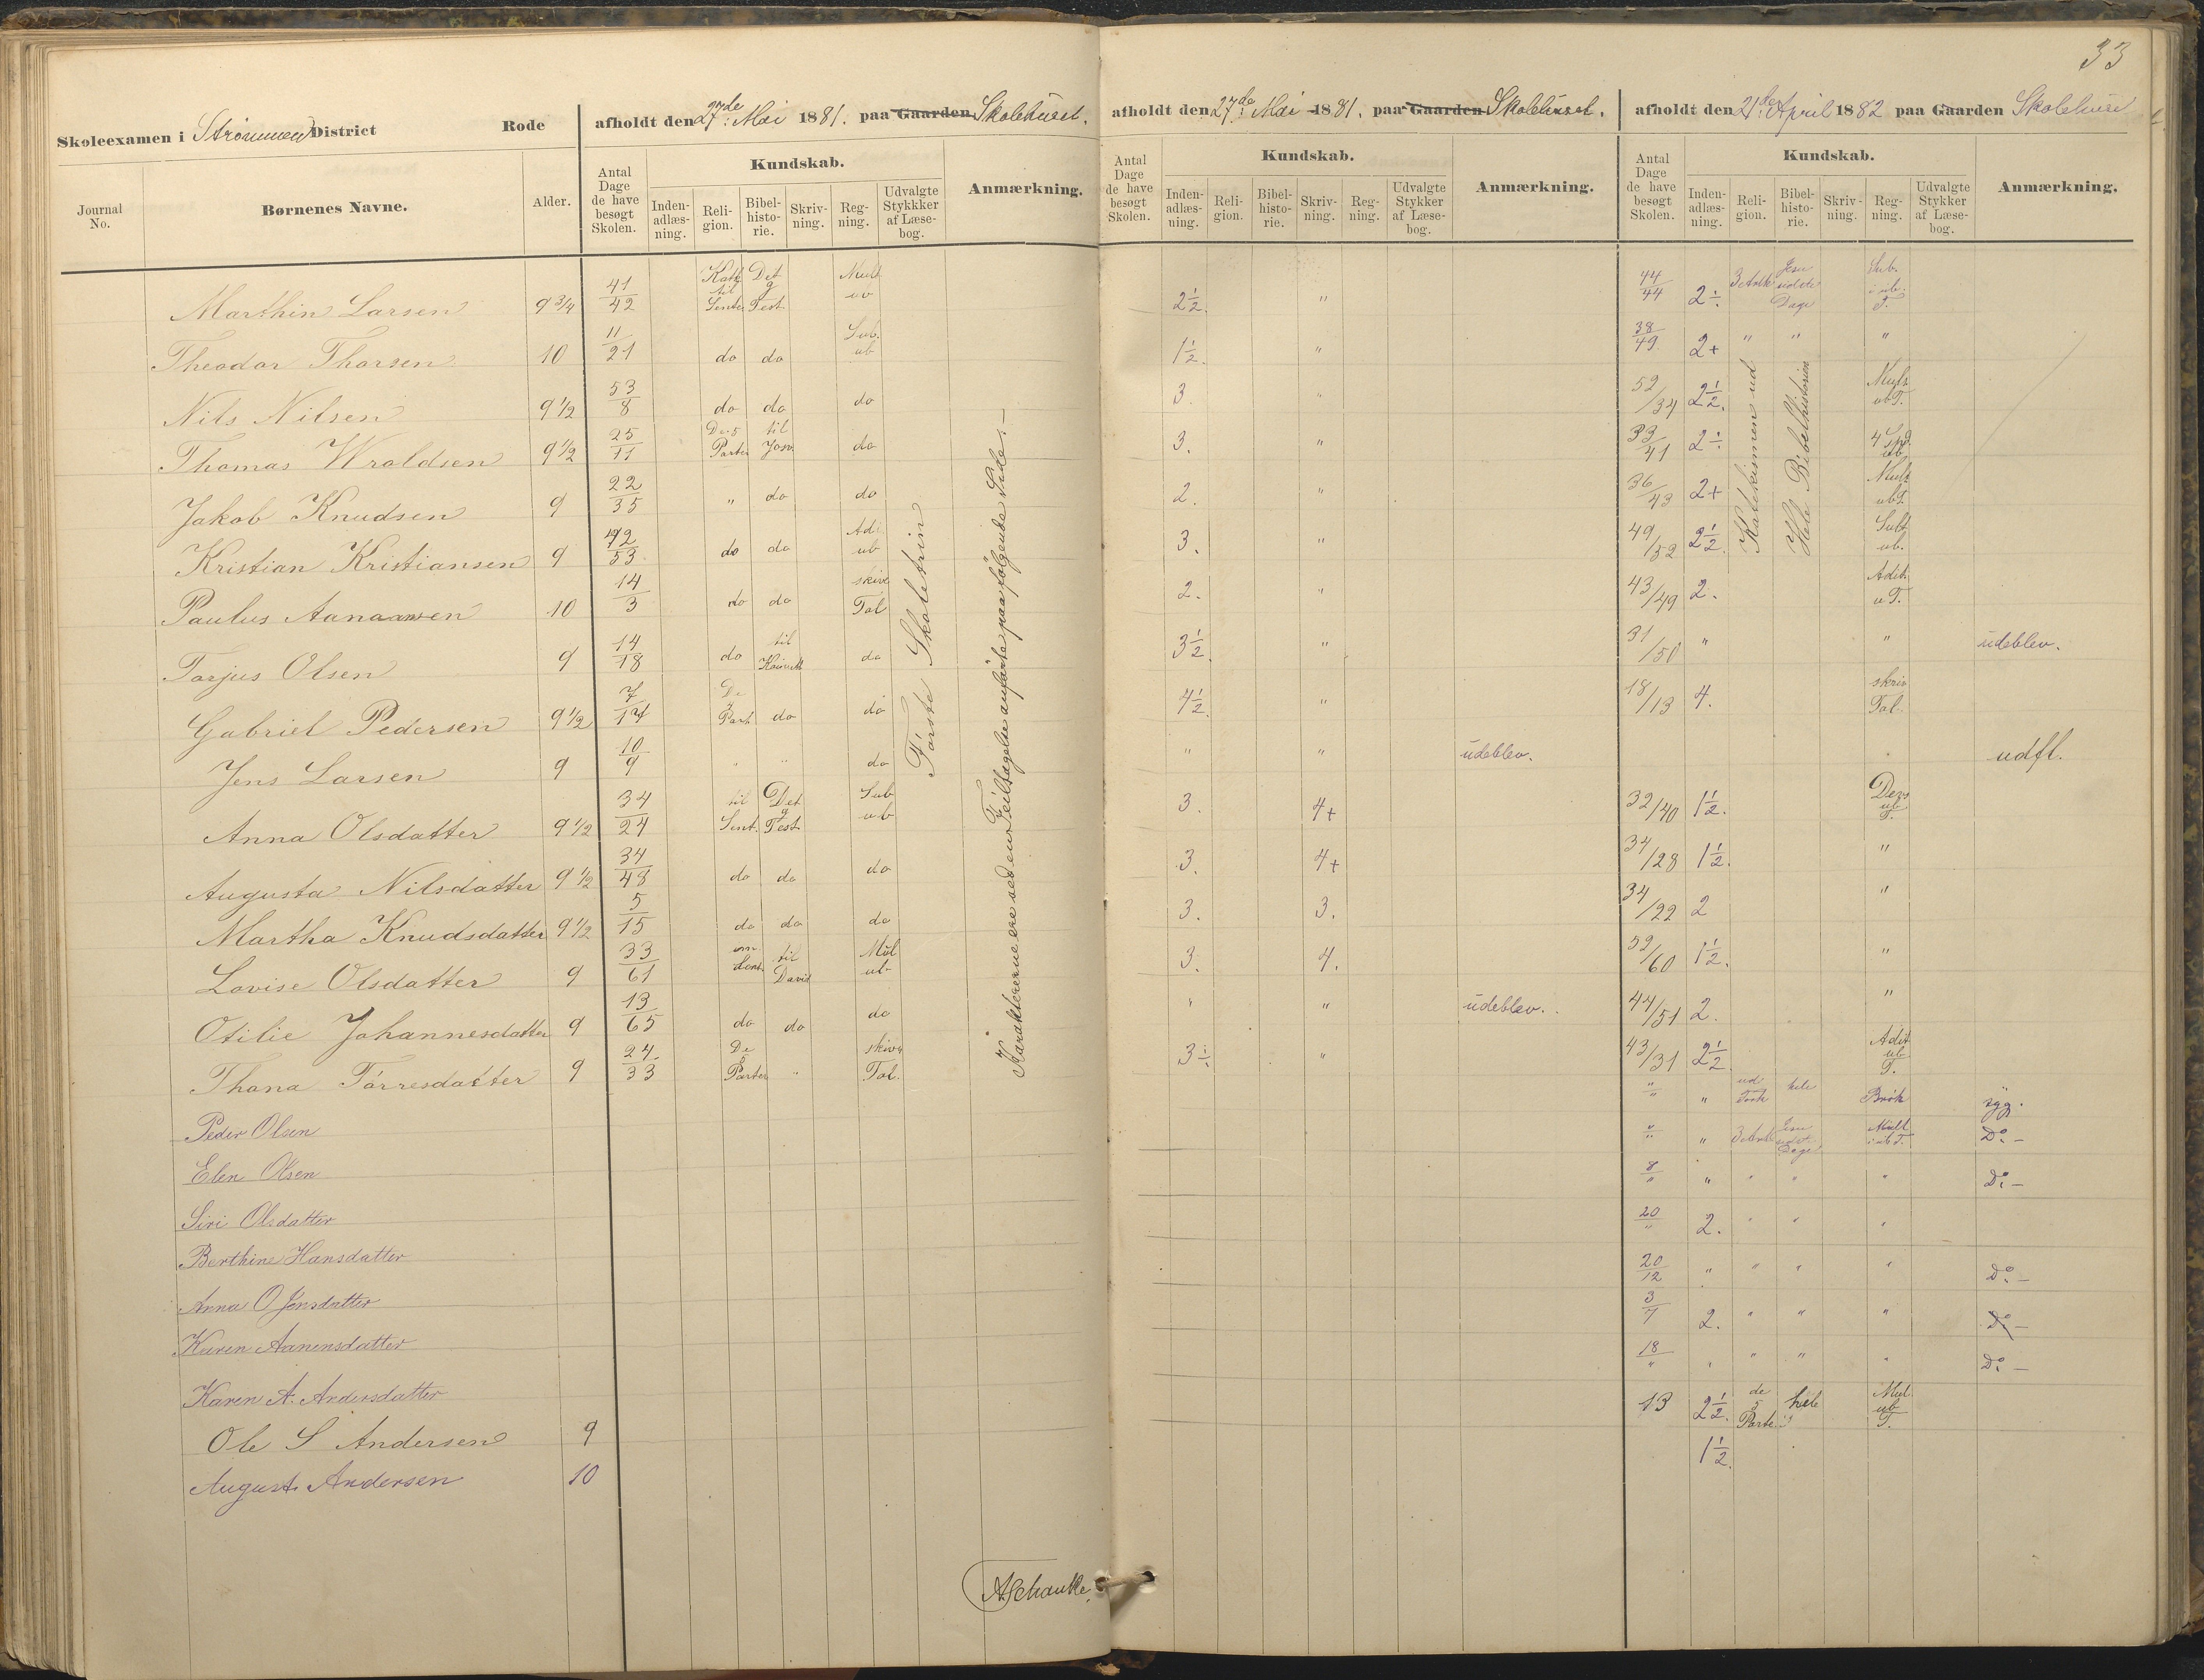 33
Skoleexamen i Strømmen District Rode afholdt den 27de Mai 1881. paa Gaarden Skolehuset.
Journal No. Børnenes Navne. Alder. Antal Dage de have besøgt Skolen. Kundskab. Inden-adlæs-ning. Reli-gion. Bibel-histo-rie. Skriv-ning. Reg-ning. Udvalgte Stykker af Læse-bog. Anmærkning.
Marthin Larsen 9 3/4 41/42 Kat til Det g Test Mult ub
Theodor Thorsen 10 11/21 do do Sub. ub
Nils Nilsen 9 1/2 53/8 do do do
Thomas Wroldsen 9 1/2 25/11 De 5 Parter til Josv. do
Jakob Knudsen 9 22/35 " do do
Kristian Kristiansen 9 42/53 do do Adi ub
Paulus Aanaansen 10 14/3 do do skive Tal
Torjus Olsen 9 14/18 do til do
Gabriel Pedersen 9 1/2 7/17 De Part do do
Jens Larsen 9 10/9 " " do
Anna Olsdatter 9 1/2 34/24 til Sent. Det g Test Sub ub
Augusta Nilsdatter 9 1/2 34/48 do do do
Martha Knudsdatter 9 1/2 5/15 do do do
Lovise Olsdatter 9 33/61 til David Mul ub
Otilie Johannesdatter 9 13/65 do do do
Thona Torresdatter 9 24/33 De Parter " skive Tal.
Peder Olsen
Elen Olsen
Siri Olsdatter
Berthine Hansdatter
Anna O Jensdatter
Karen Aanensdatter
Karen A. Andersdatter
Ole S Andersen 9
August Andersen 10
Første Skoletrin
Karaktererne ere ved en Feiltagelse anførte paa følgende Side. —
ASchanke.
afholdt den 27de Mai 1881. paa Gaarden Skolehuset.
Antal Dage de have besøgt Skolen. Kundskab. Inden-adlæs-ning. Reli-gion. Bibel-histo-rie. Skriv-ning. Reg-ning. Udvalgte Stykker af Læse-bog. Anmærkning.
2 1/2. "
1 1/2. "
3. "
3. "
2. "
3. "
2. "
3 1/2. "
4 1/2. "
" " udeblev.
3. 4+
3. 4+
3. 3.
3. 4.
" " udeblev.
3÷. "
afholdt den 21de April 1882 paa Gaarden Skolehuse
Antal Dage de have besøgt Skolen. Kundskab. Inden-adlæs-ning. Reli-gion. Bibel-histo-rie. Skriv-ning. Reg-ning. Udvalgte Stykker af Læse-bog. Anmærkning.
44/44 2÷ 3 Artk Jesu sidste Dage Sub. i ub. T.
38/49. 2+ " " "
52/34 2 1/2. Mult ubT.
33/41 2÷ 4 Spe. ub
36/43 2+ Mult ubT.
49/52 2 1/2. Subt ub.
43/49 2. Adit. uT.
31/50 " " udeblev.
18/13 4. skriv Tal.
udfl.
32/40 1 1/2. Dess ub T.
34/28 1 1/2. "
34/22 2 "
52/60 1 1/2. "
44/51 2. "
43/31 2 1/2 Adit ub T.
"/" " ud hele Brøk syg.
"/" " 3 Artk Jesu sidst. Dage Mult i ub T. Do —
8/" " " " " Do —
20/" 2. " " "
20/12 " " " " Do —
3/7 2. " " " Do —
18/" " " " " Do —
13 2 1/2. de 5 Parte hele Mul ub T.
1 1/2.
Katekismen ud
Hele Bibelhistorien